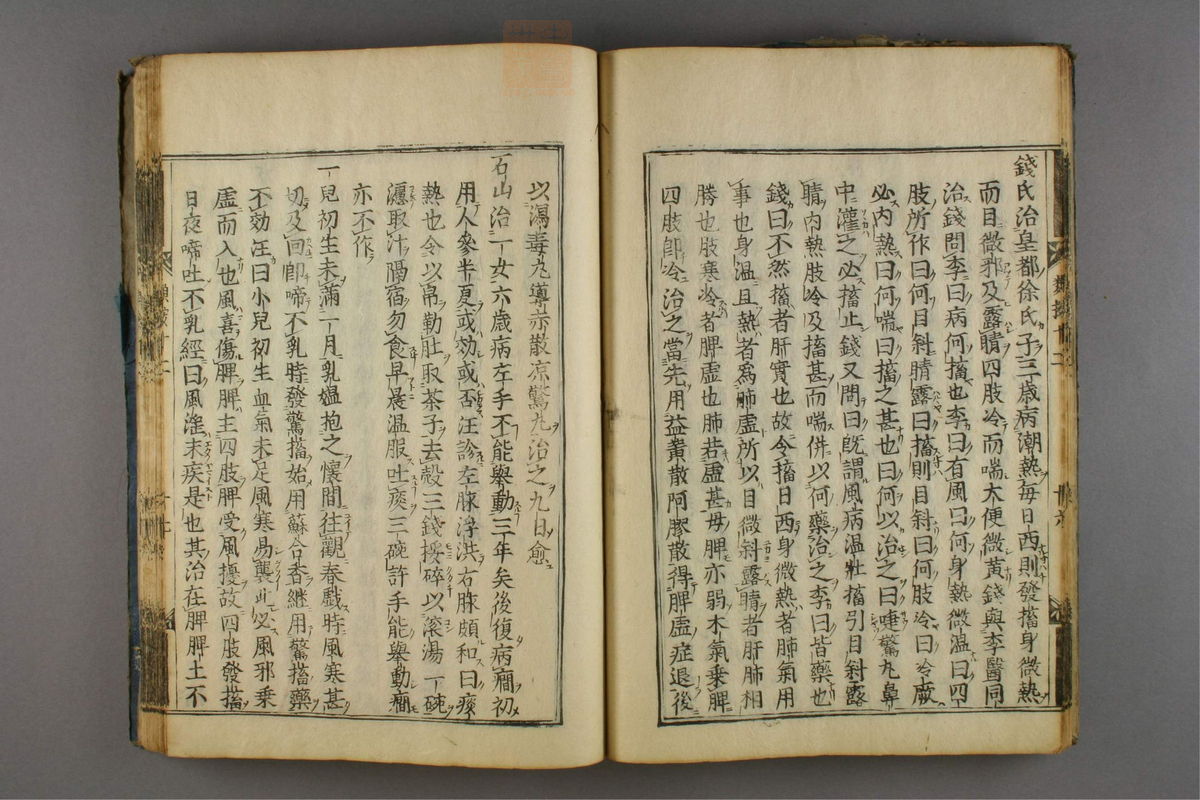 錢氏治皇都徐氏子三歲病潮熱每日西則發搐身微熱
而目微邪及露睛四肢冷而喘大便微黃錢與李醫同
治錢問李曰病何搐也李曰有風曰何身熱微溫曰四
肢所作曰何目斜睛露曰搐則目斜曰何肢冷曰冷厥
必內熱曰何喘曰搐之甚也曰何以治之曰嚏驚丸鼻
中灌之必搐止錢又問曰既謂風病溫壯搐引目斜露
睛內熱肢冷及搐甚而喘併以何藥治之李曰皆藥也
錢曰不然搐者肝實也故令搐日西身微熱者肺氣用
事也身溫且熱者為肺虛所以目微斜露睛者肝肺相
勝也肢寒冷者脾虛也肺若虛甚母脾亦弱木氣乘脾
四肢即冷治之當先用益黃散阿膠散得脾虛症退後
以瀉毒丸導赤散凉驚丸治之九日愈
石山治一女六歲病左手不能舉動三年矣後復病癇初
用人參半夏或効或否汪診左脉浮洪右脉頗和曰痰
熱也令以帛勒肚取茶子去殼三錢挼碎以滾湯一碗
濾取汁隔宿勿食早晨溫服吐痰三碗許手能舉動癇
亦不作
一兒初生未滿一月乳媼抱之懷間往觀春戲時風寒甚
切及回即啼不乳時發驚搐始用蘇合香繼用驚搐藥
不効汪曰小兒初生血氣未足風寒易襲此必風邪乘
虛而入也風喜傷脾脾主四肢脾受風擾故四肢發搐
日夜啼吐不乳經曰風淫末疾是也其治在脾脾土不